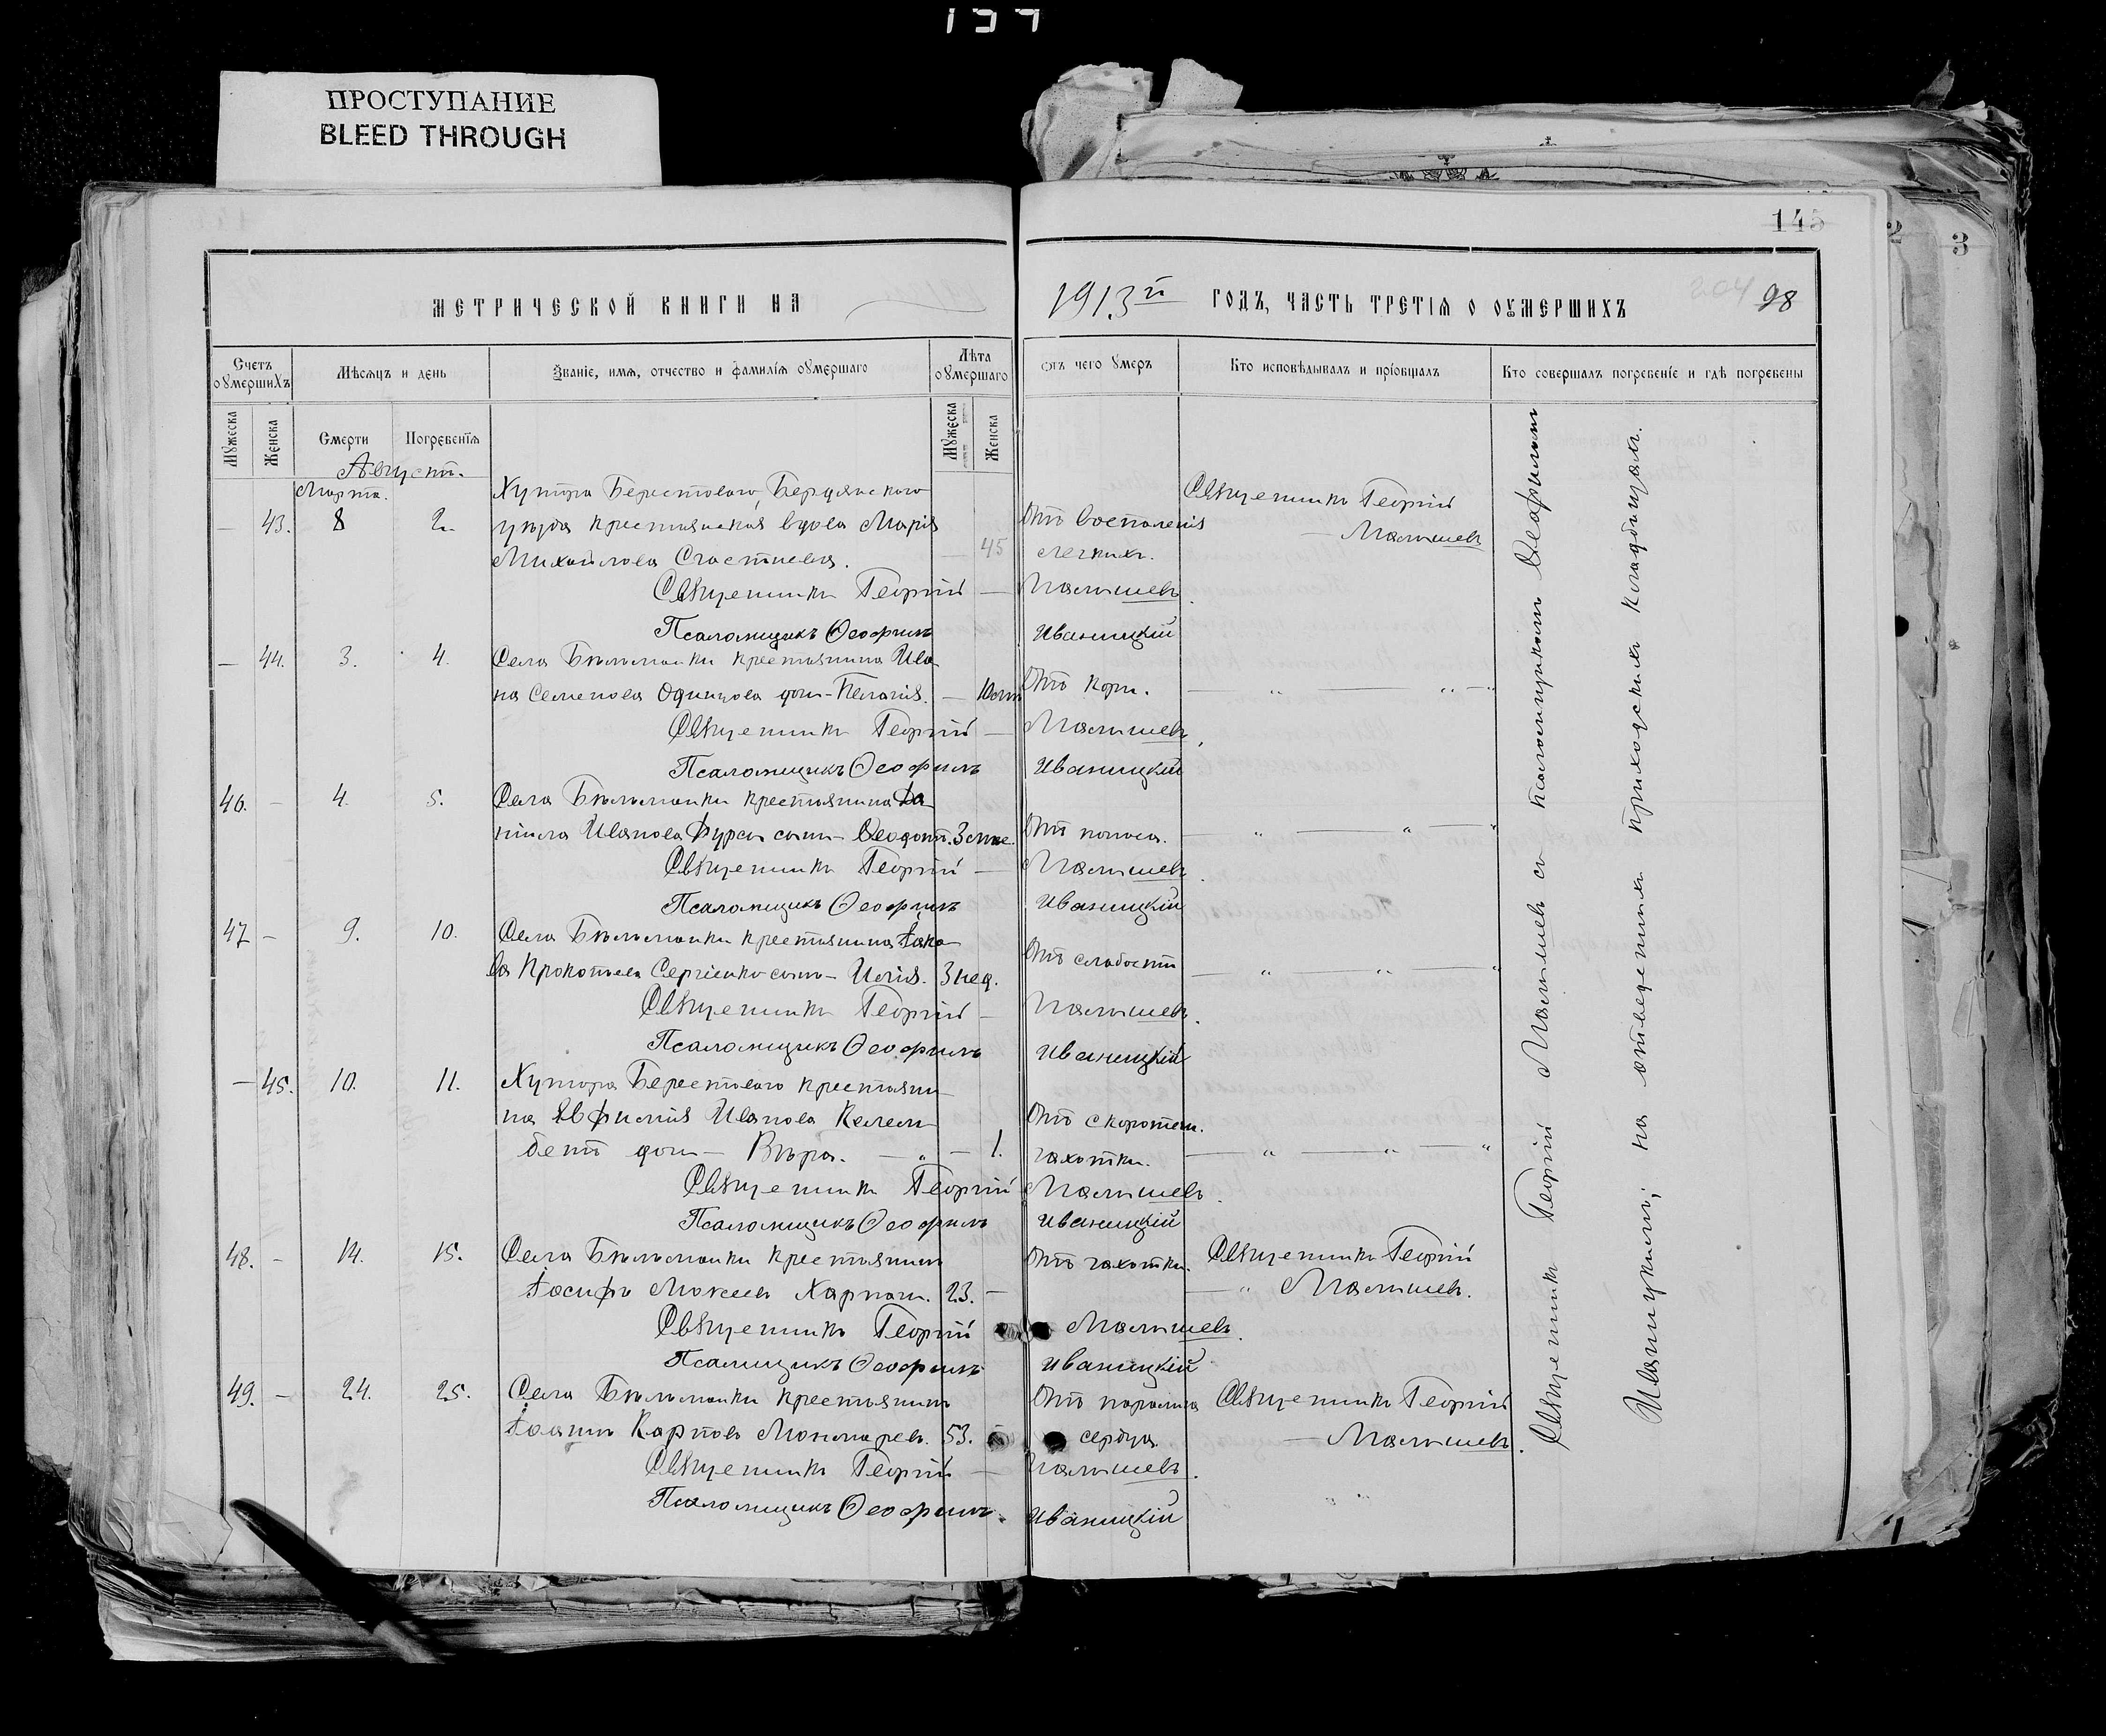 ПРОСТУПАНИЕ
BLEED THROUGH
145
2
3
МЕТРИЧЕСКОЙ КНИГИ НА 1913й ГОДЪ, ЧАСТЬ ТРЕТІЯ О ОУМЕРШИХЪ 204 98
Счетъ оумершихъ
Мѣсяцъ и день
Званіе, имя, отчество и фамилія оумершаго
Лѣта оумершаго
Отъ чего умеръ
Кто исповѣдывалъ и пріобщалъ
Кто совершалъ погребеніе и гдѣ погребены
Мужеска
Женска
Смерти
Погребенія
Мужеска
Женска
Августъ.
Марта. Хутора Берестоваго, Бердянскаго Священникъ Георгій
— 43. 8 2. уѣзда крестьянская вдова Марія Отъ воспаленія — Малышевъ
Михайлова Счастнева. — 45 легкихъ.
Священникъ Георгій — Малышевъ.
Псаломщикъ Ѳеофилъ Иваницкій
— 44. 3. 4. Села Бѣльманки крестьянина Ива-
на Семенова Одинцова дочь - Пелагія. — Отъ кори. — „ — „ —
Священникъ Георгій — Малышевъ.
Псаломщикъ Ѳеофилъ Иваницкій
46. — 4. 5. Села Бѣльманки крестьянина Да-
ніила Иванова Фурсы сынъ - Ѳеодотъ. Отъ поноса. — „ — „ — „
Священникъ Георгій — Малышевъ.
Псаломщикъ Ѳеофилъ Иваницкій
47 — 9. 10. Села Бѣльманки крестьянина Іако-
ва Прокопьева Сергіенко сынъ - Илія. 3 нед. Отъ слабости — „ — „ — „
Священникъ Георгій — Малышевъ.
Псаломщикъ Ѳеофилъ Иваницкій
— 45. 10. 11. Хутора Берестоваго крестьяни-
на Евфимія Иванова Келем- Отъ скоротеч.
бетъ дочь — Вѣра. — „ — 1. чахотки. — „ — „ — „
Священникъ Георгій Малышевъ.
Псаломщикъ Ѳеофилъ Иваницкій
48. — 14. 15. Села Бѣльманки крестьянинъ Отъ чахотки. Священникъ Георгій
Іосифъ Мокеевъ 23. — — „ Малышевъ.
Священникъ Георгій Малышевъ.
Псаломщикъ Ѳеофилъ Иваницкій
49. — 24. 25. Села Бѣльманки крестьянинъ Отъ паралича Священникъ Георгій
Іоаннъ Карповъ 53. сердца. — Малышевъ.
Священникъ Георгій — Малышевъ.
Псаломщикъ Ѳеофилъ Иваницкій
Священникъ Георгій Малышевъ съ псаломщикомъ Ѳеофиломъ
Иваницкимъ; на отведенныхъ приходскихъ кладбищахъ.